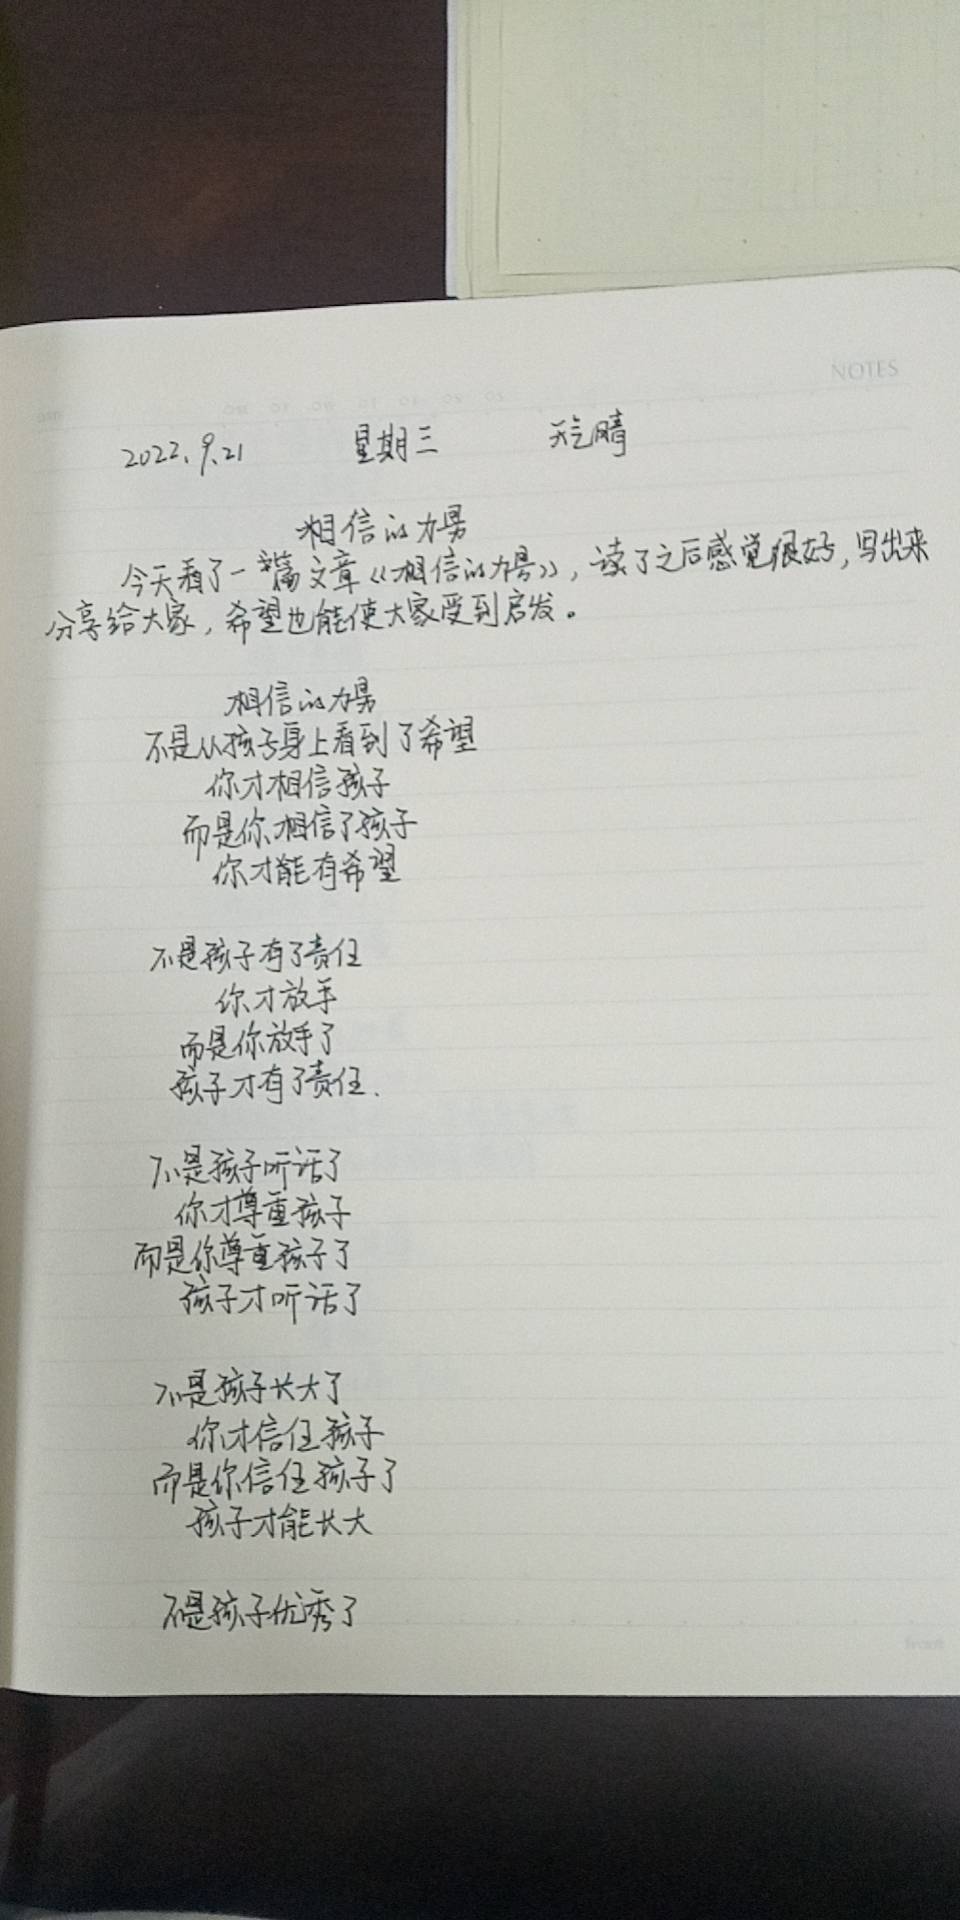 NOTES
2022.9.21 星期三 天气晴
相信的力量
今天看了一篇文章《相信的力量》，读了之后感觉很好，写出来
分享给大家，希望也能使大家受到启发。
相信的力量
不是从孩子身上看到了希望
你才相信孩子
而是你相信了孩子
你才能有希望
不是孩子有了责任
你才放手
而是你放手了
孩子才有了责任.
不是孩子听话了
你才尊重孩子
而是你尊重孩子了
孩子才听话了
不是孩子长大了
你才信任孩子
而是你信任孩子了
孩子才能长大
不是孩子优秀了